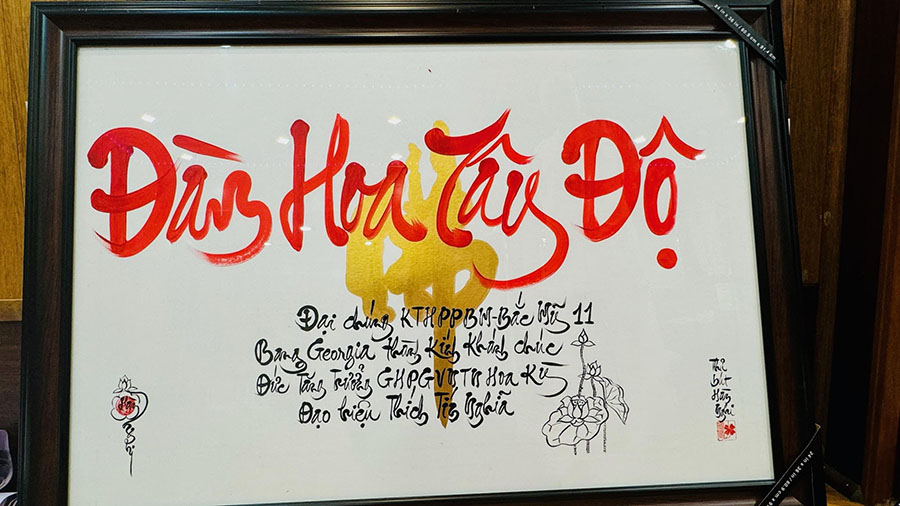 Đàn Hoa Tây Độ
Đại chúng KTHPPBM-Bắc Mỹ 11
Bang Georgia thành kính khánh chúc
Đức Tăng Trưởng GHPGVNTN Hoa Kỳ
Đạo hiệu Thích Tín Nghĩa
Thi bút
24 in x 36 in / 60.9 cm x 91.4 cm